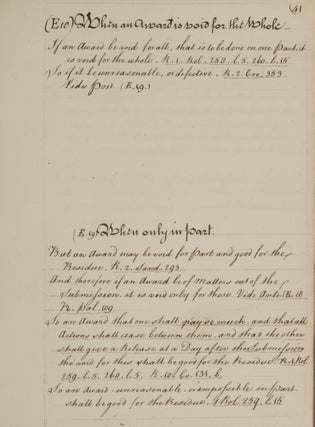 41
(E 18) When an Award is void for the Whole
If an Award be void for all, that is to be done on one Part, it
is void for the whole. R. 1. Rol. 259. l. 5. 260. l. 15
So if it be unreasonable, or defective. R. 2. Cro. 353
Vide Post (E. 19.)
(E. 19) When only in part.
But an Award may be void for part and good for the
Residue. R. 2. Saud. 293
And therefore if an Award be of Matters out of the
Submission, it is void only for those Vide Ante (E. 6)
R. Pal. 109
So an Award that one shall pay so much, and that all
Actions shall cease between them, and that the other
shall give a Release at a Day after the Submission
tho void for these shall be good for the Residue. R. 1 Rol
259. l. 5. 260. l. 5. R. 10. Co. 131. b.
So an Award unreasonable or impossible in part
shall be good for the Residue. 1 Rol. 259. l. 15